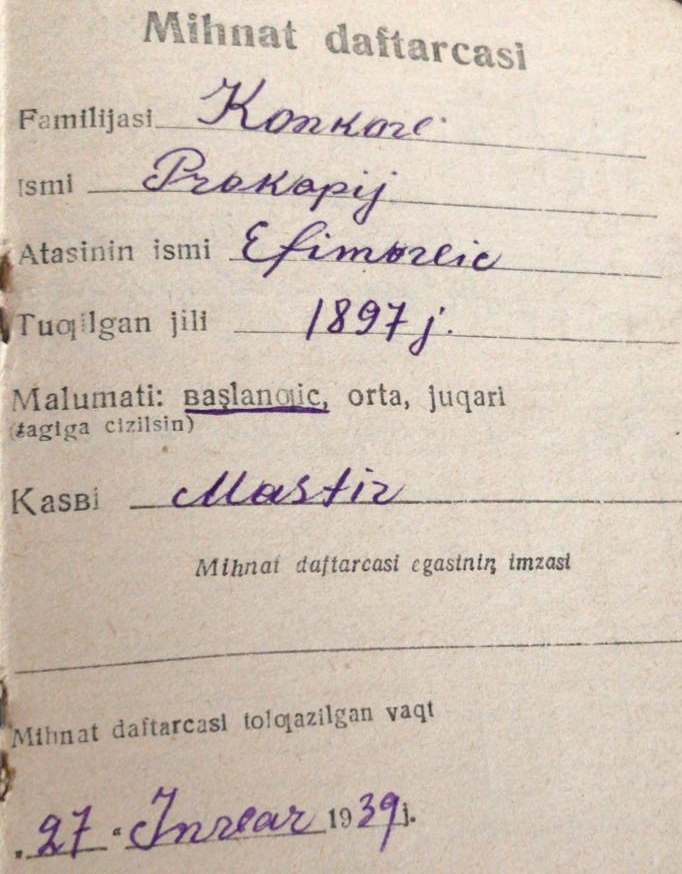 Mihnat daftarcasi
Familijasi Konkov
Ismi Prokapij
Atasinin ismi Efimovic
Tuƣilgan jili 1897 j.
Malumati: ʙaşlanƣic, orta, juqari
(tagiga cizilsin)
Kasʙi Mastir
Mihnat daftarcasi egasiniꞑ imzasi
Mihnat daftarcasi tolƣazilgan vaqt
„27“ Jnvar 1939 j.